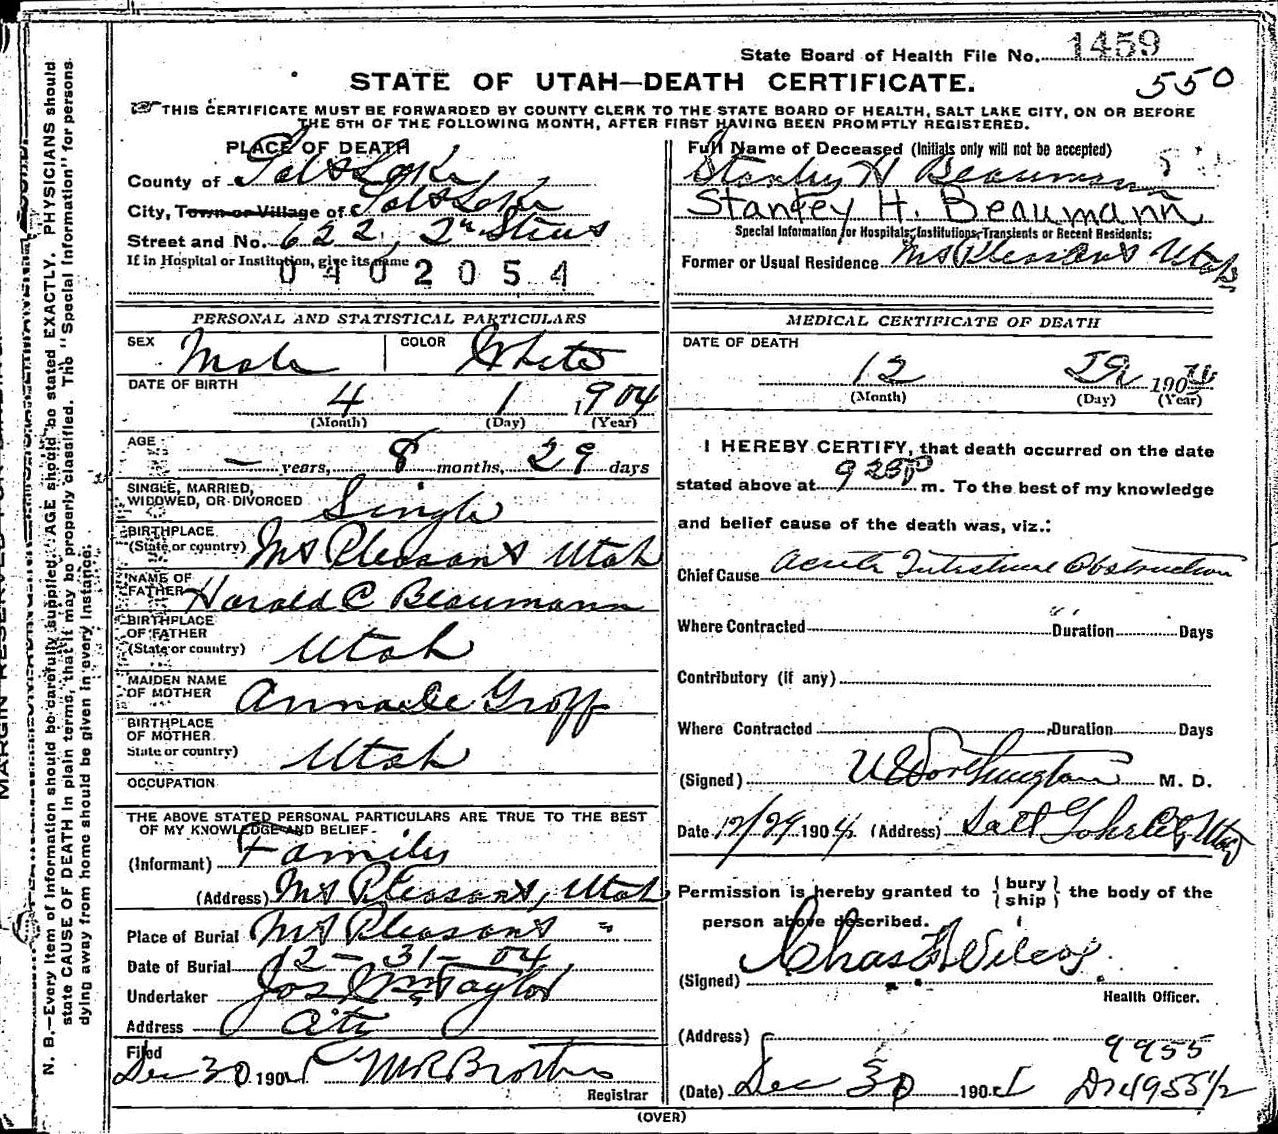 State Board of Health File No. 1459
STATE OF UTAH—DEATH CERTIFICATE.
550
THIS CERTIFICATE MUST BE FORWARDED BY COUNTY CLERK TO THE STATE BOARD OF HEALTH, SALT LAKE CITY, ON OR BEFORE
THE 5TH OF THE FOLLOWING MONTH, AFTER FIRST HAVING BEEN PROMPTLY REGISTERED.
PLACE OF DEATH
County of Salt Lake
City, Town or Village of Salt Lake
Street and No. 622, 2nd
If in Hospital or Institution, give its name
0402054
Full Name of Deceased (Initials only will not be accepted)
Stanley H Beaumann
Stanley H. Beaumann
Special Information for Hospitals, Institutions, Transients or Recent Residents:
Former or Usual Residence Mt Pleasant Utah
PERSONAL AND STATISTICAL PARTICULARS
SEX Male COLOR White
DATE OF BIRTH
4 1 1904
(Month) (Day) (Year)
AGE
— years, 8 months, 29 days
SINGLE, MARRIED,
WIDOWED, OR DIVORCED Single
BIRTHPLACE
(State or country) Mt Pleasant Utah
NAME OF
FATHER Harold C Beaumann
BIRTHPLACE
OF FATHER
(State or country) Utah
MAIDEN NAME
OF MOTHER Anna De Groff
BIRTHPLACE
OF MOTHER
State or country) Utah
OCCUPATION
THE ABOVE STATED PERSONAL PARTICULARS ARE TRUE TO THE BEST
OF MY KNOWLEDGE AND BELIEF
(Informant) Family
(Address) Mt Pleasant, Utah
Place of Burial Mt Pleasant "
Date of Burial 12 — 31 — 04
Undertaker Jos Wm Taylor
Address City
Filed
Dec 30 1904
Registrar
MEDICAL CERTIFICATE OF DEATH
DATE OF DEATH
12 29 1904
(Month) (Day) (Year)
I HEREBY CERTIFY, that death occurred on the date
stated above at m. To the best of my knowledge
and belief cause of the death was, viz.:
Chief Cause Acute Intestinal Obstruction
Where Contracted Duration Days
Contributory (if any)
Where Contracted Duration Days
(Signed) Worthington M. D.
Date 12/29 1904 (Address) Salt Lake City Utah
Permission is hereby granted to { bury ship } the body of the
person above described.
(Signed) Chas F Wilcox
Health Officer.
(Address)
9955
(Date) Dec 30 1904
(OVER)
MARGIN RESERVED FOR BINDING
N. B.—Every item of information should be carefully supplied. AGE should be stated EXACTLY. PHYSICIANS should
state CAUSE OF DEATH in plain terms, that it may be properly classified. The "Special Information" for persons
dying away from home should be given in every instance.